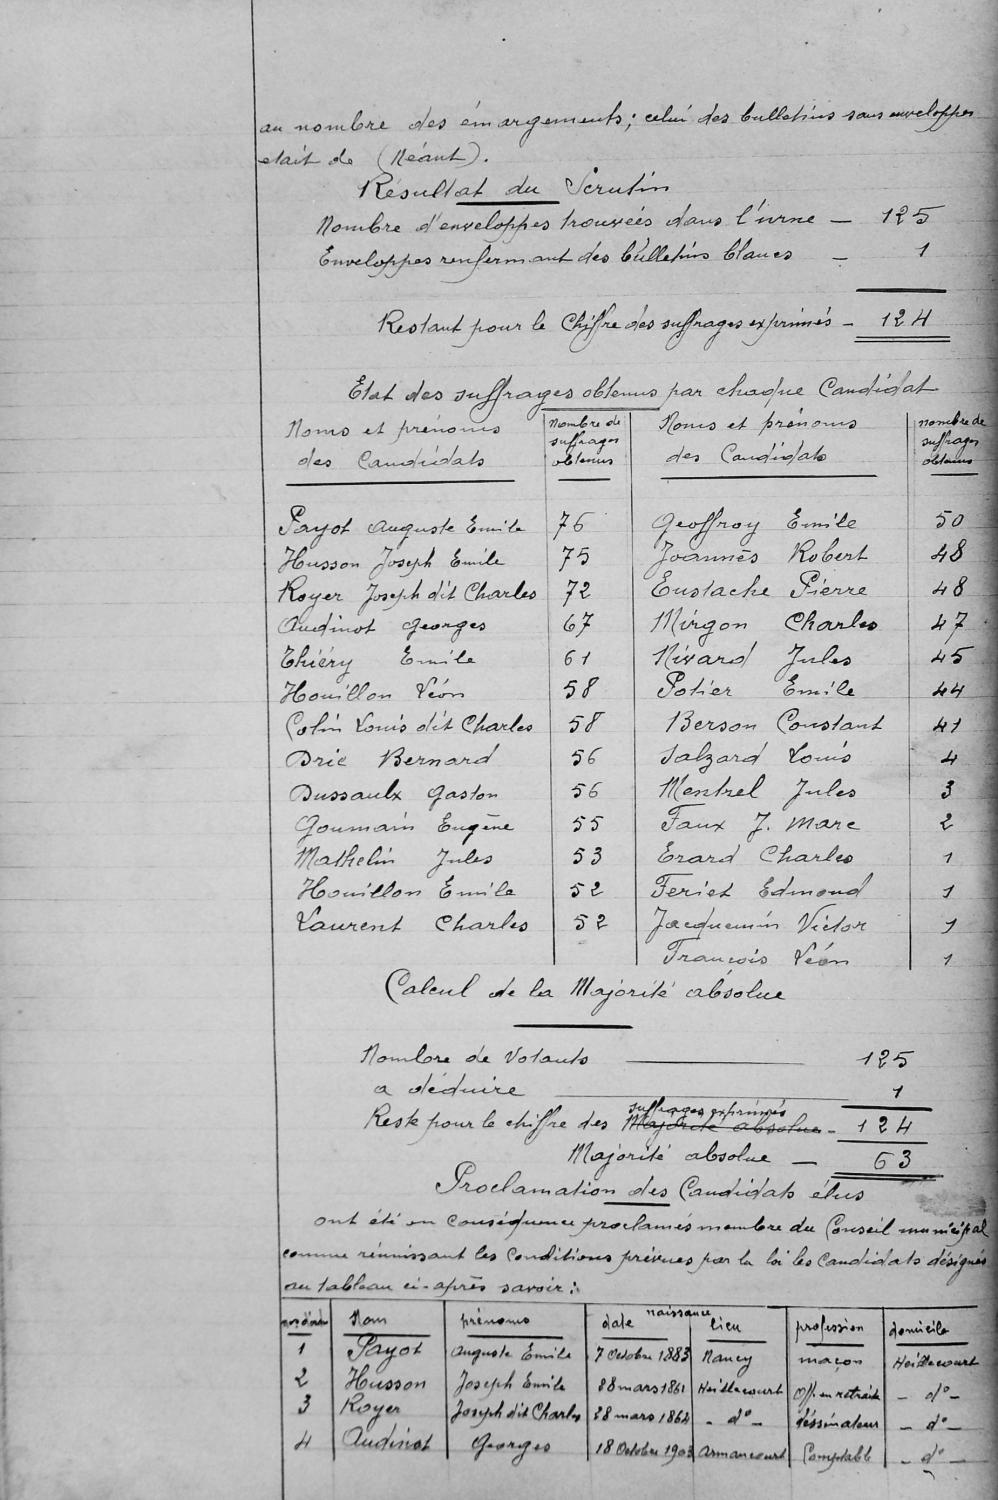 au nombre des émargements; celui des bulletins sans enveloppes
etait de (Néant).
Résultat du Scrutin
Nombre d'enveloppes trouvées dans l'urne — 125
Enveloppes renfermant des bulletins blancs — 1
Restant pour le chiffre des suffrages exprimés — 124
Etat des suffrages obtenus par chaque Candidat
Noms et prénoms des Candidats | nombre de suffrages obtenus | Noms et prénoms des Candidats | nombre de suffrages obtenus
Payot Auguste Emile 76 Geoffroy Emile 50
Husson Joseph Emile 75 Joannès Robert 48
Royer Joseph dit Charles 72 Eustache Pierre 48
Audinot Georges 67 Mirgon Charles 47
Thiéry Emile 61 Nivard Jules 45
Houillon Léon 58 Potier Emile 44
Colin Louis dit Charles 58 Berson Constant 41
Dric Bernard 56 Salzard Louis 4
Dussaulx Gaston 56 Mentrel Jules 3
Goumain Eugène 55 Faux J. Marc 2
Mathelin Jules 53 Erard Charles 1
Houillon Emile 52 Feriet Edmond 1
Laurent Charles 52 Jacquemin Victor 1
François Léon 1
Calcul de la Majorité absolue
Nombre de Votants 125
a déduire 1
suffrages exprimés
Reste pour le chiffre des Majorité absolue — 124
Majorité absolue — 63
Proclamation des Candidats élus
ont été en conséquence proclamés membre du Conseil municipal
comme réunissant les conditions prévues par la loi les candidats désignés
au tableau ci-après savoir:
nos d'ordre | Nom | prénoms | naissance date | lieu | profession | domicile
1 Payot Auguste Emile 7 Octobre 1883 Nancy maçon Heillecourt
2 Husson Joseph Emile mars 1861 Heillecourt Off. en retraite — d° —
3 Royer Joseph dit Charles 28 mars 1864 — d° — déssinateur — d° —
4 Audinot Georges 18 Octobre 1903 Armancourt Comptabl — d° —